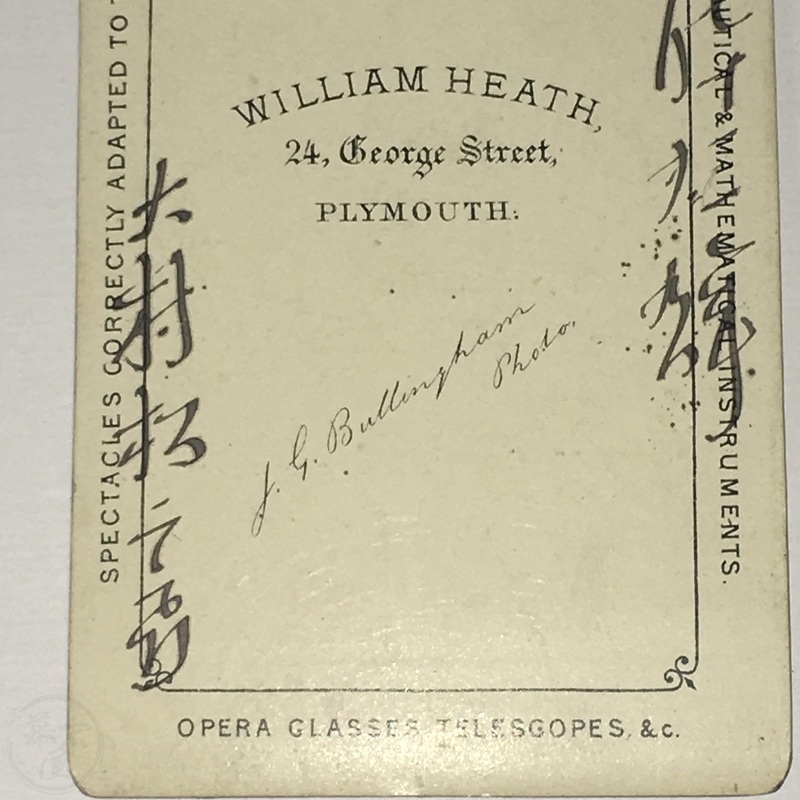 WILLIAM HEATH,
24, George Street,
PLYMOUTH.
J. G. Bullingham
Photo.
SPECTACLES CORRECTLY ADAPTED TO
& MATHEMATICAL INSTRUMENTS.
OPERA GLASSES, TELESCOPES, &c.
大村松二郎